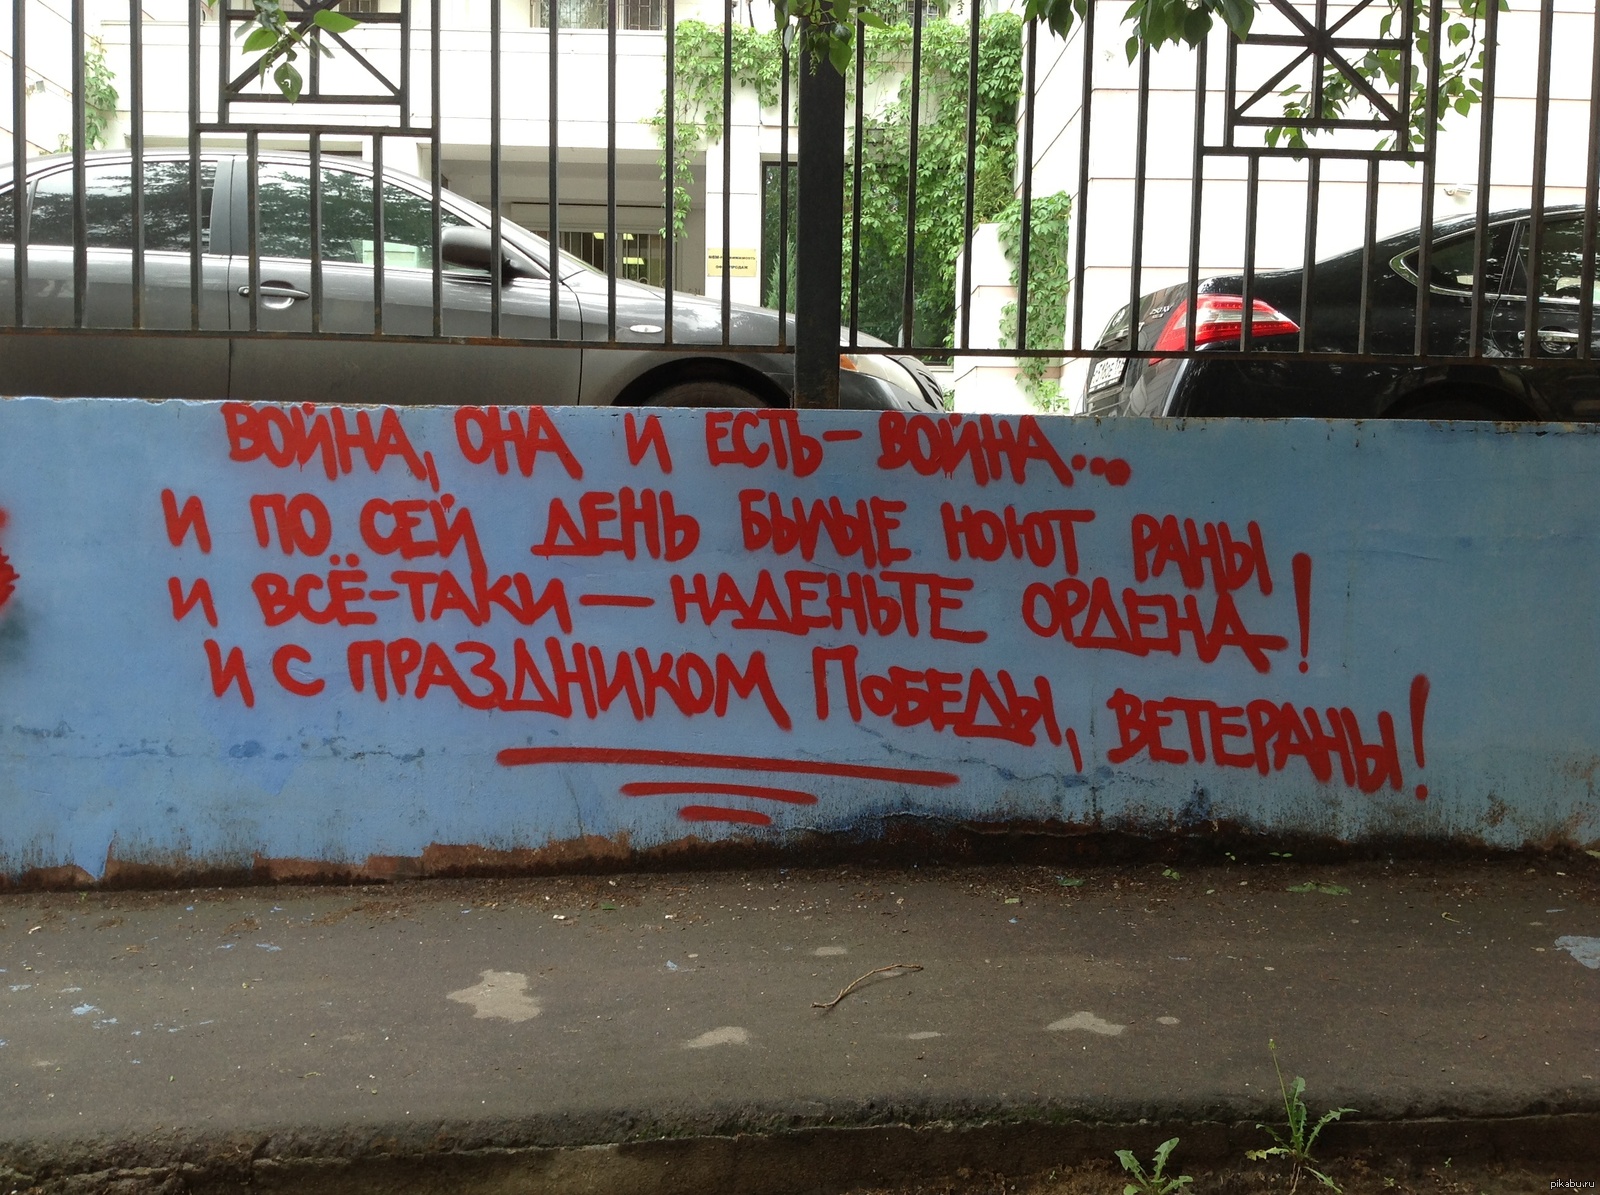 ВОЙНА, ОНА И ЕСТЬ – ВОЙНА...
И ПО СЕЙ ДЕНЬ БЫЛЫЕ НОЮТ РАНЫ
И ВСЁ-ТАКИ — НАДЕНЬТЕ ОРДЕНА!
И С ПРАЗДНИКОМ ПОБЕДЫ, ВЕТЕРАНЫ!
pikabu.ru